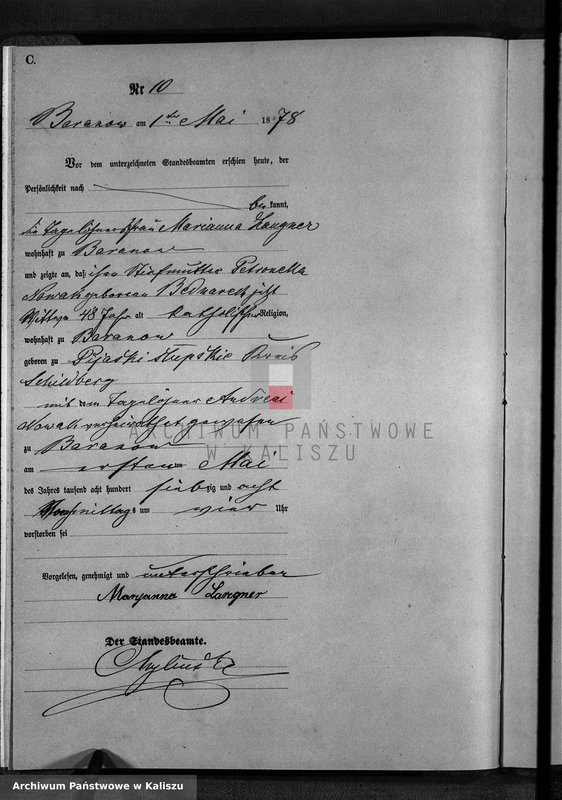 C.
Nr 10
Baranow am 1ten Mai 1878
Vor dem unterzeichneten Standesbeamten erschien heute, der
Persönlichkeit nach
bekannt,
die Tagelöhnersfrau Marianna Langner
wohnhaft zu Baranow
und zeigte an, daß ihre Stiefmutter Petronella
Nowak geborene Bednarek jetzt
Wittwe 48 Jahr alt katholischer Religion,
wohnhaft zu Baranow
geboren zu Pijaski Kreis
Schildberg
mit dem Tagelöhner Andreas
Nowak verheirathet gewesen
zu Baranow
am ersten Mai
des Jahres tausend acht hundert siebzig und acht
mittags um vier Uhr
verstorben sei
Vorgelesen, genehmigt und unterschrieben
Maryanna Langner
Der Standesbeamte.
ARCHIWUM PAŃSTWOWE
W KALISZU
Archiwum Państwowe w Kaliszu